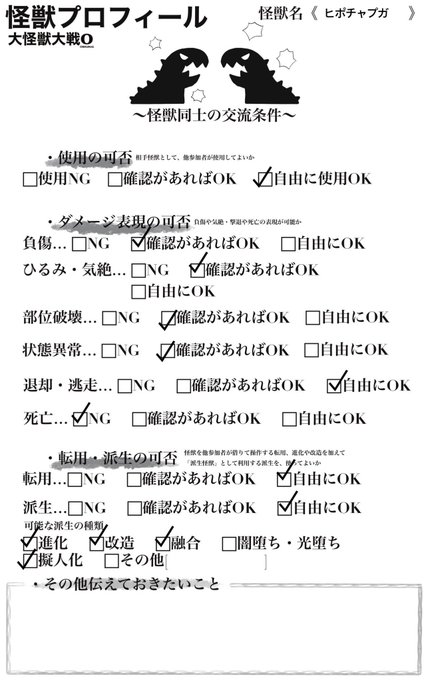 怪獣プロフィール
怪獣名《 ヒポチャプガ 》
大怪獣大戦O
〜怪獣同士の交流条件〜
・使用の可否 相手怪獣として、他参加者が使用してよいか
使用NG 確認があればOK 自由に使用OK
・ダメージ表現の可否 負傷や気絶・撃退や死亡の表現が可能か
負傷… NG 確認があればOK 自由にOK
ひるみ・気絶… NG 確認があればOK
自由にOK
部位破壊… NG 確認があればOK 自由にOK
状態異常… NG 確認があればOK 自由にOK
退却・逃走… NG 確認があればOK 自由にOK
死亡… NG 確認があればOK 自由にOK
・転用・派生の可否 怪獣を他参加者が借りて操作する転用、進化や改造を加えて
「派生怪獣」として利用する派生を、使ってよいか
転用… NG 確認があればOK 自由にOK
派生… NG 確認があればOK 自由にOK
可能な派生の種類
進化 改造 融合 闇堕ち・光堕ち
擬人化 その他[ ]
・その他伝えておきたいこと